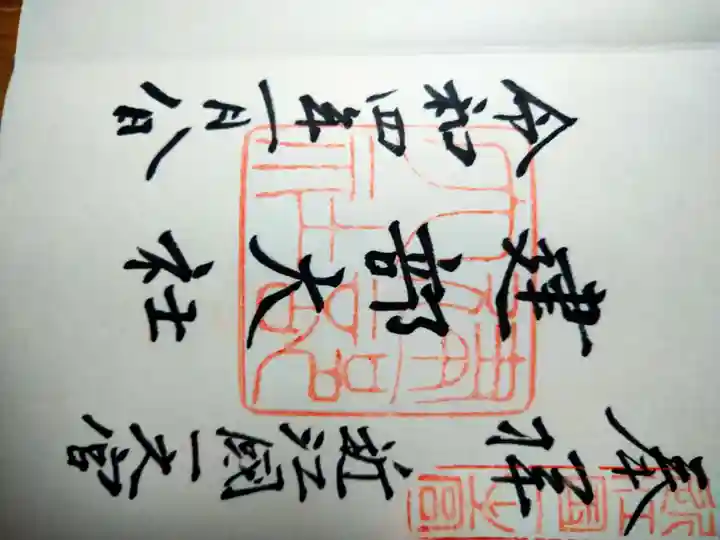 奉拝 近江國一之宮
建部大社
令和四年一月八日